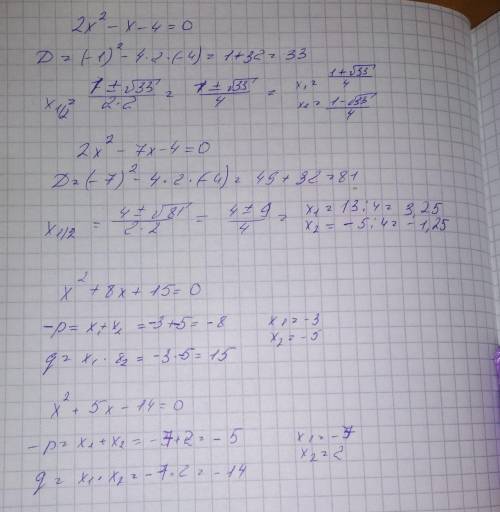 2x² - x - 4 = 0
D = (-1)² - 4·2·(-4) = 1 + 32 = 33
x₁/₂ = (1 ± √33)/(2·2) = (1 ± √33)/4 = x₁ = (1 + √33)/4
x₂ = (1 - √33)/4
2x² - 7x - 4 = 0
D = (-7)² - 4·2·(-4) = 49 + 32 = 81
x₁/₂ = (4 ± √81)/(2·2) = (4 ± 9)/4 = x₁ = 13 : 4 = 3,25
x₂ = -5 : 4 = -1,25
x² + 8x + 15 = 0
-p = x₁ + x₂ = -3 + -5 = -8 x₁ = -3
x₂ = -5
q = x₁ · 8₂ = -3·-5 = 15
x² + 5x - 14 = 0
-p = x₁ + x₂ = -7 + 2 = -5 x₁ = -7
x₂ = 2
q = x₁ · x₂ = -7 · 2 = -14